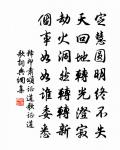 定慧圓明終不失
天回地轉光澄寂
劫火洞然轉轉新
個事如何誰委悉
釋印肅頌證道歌證道
歌詞典網集